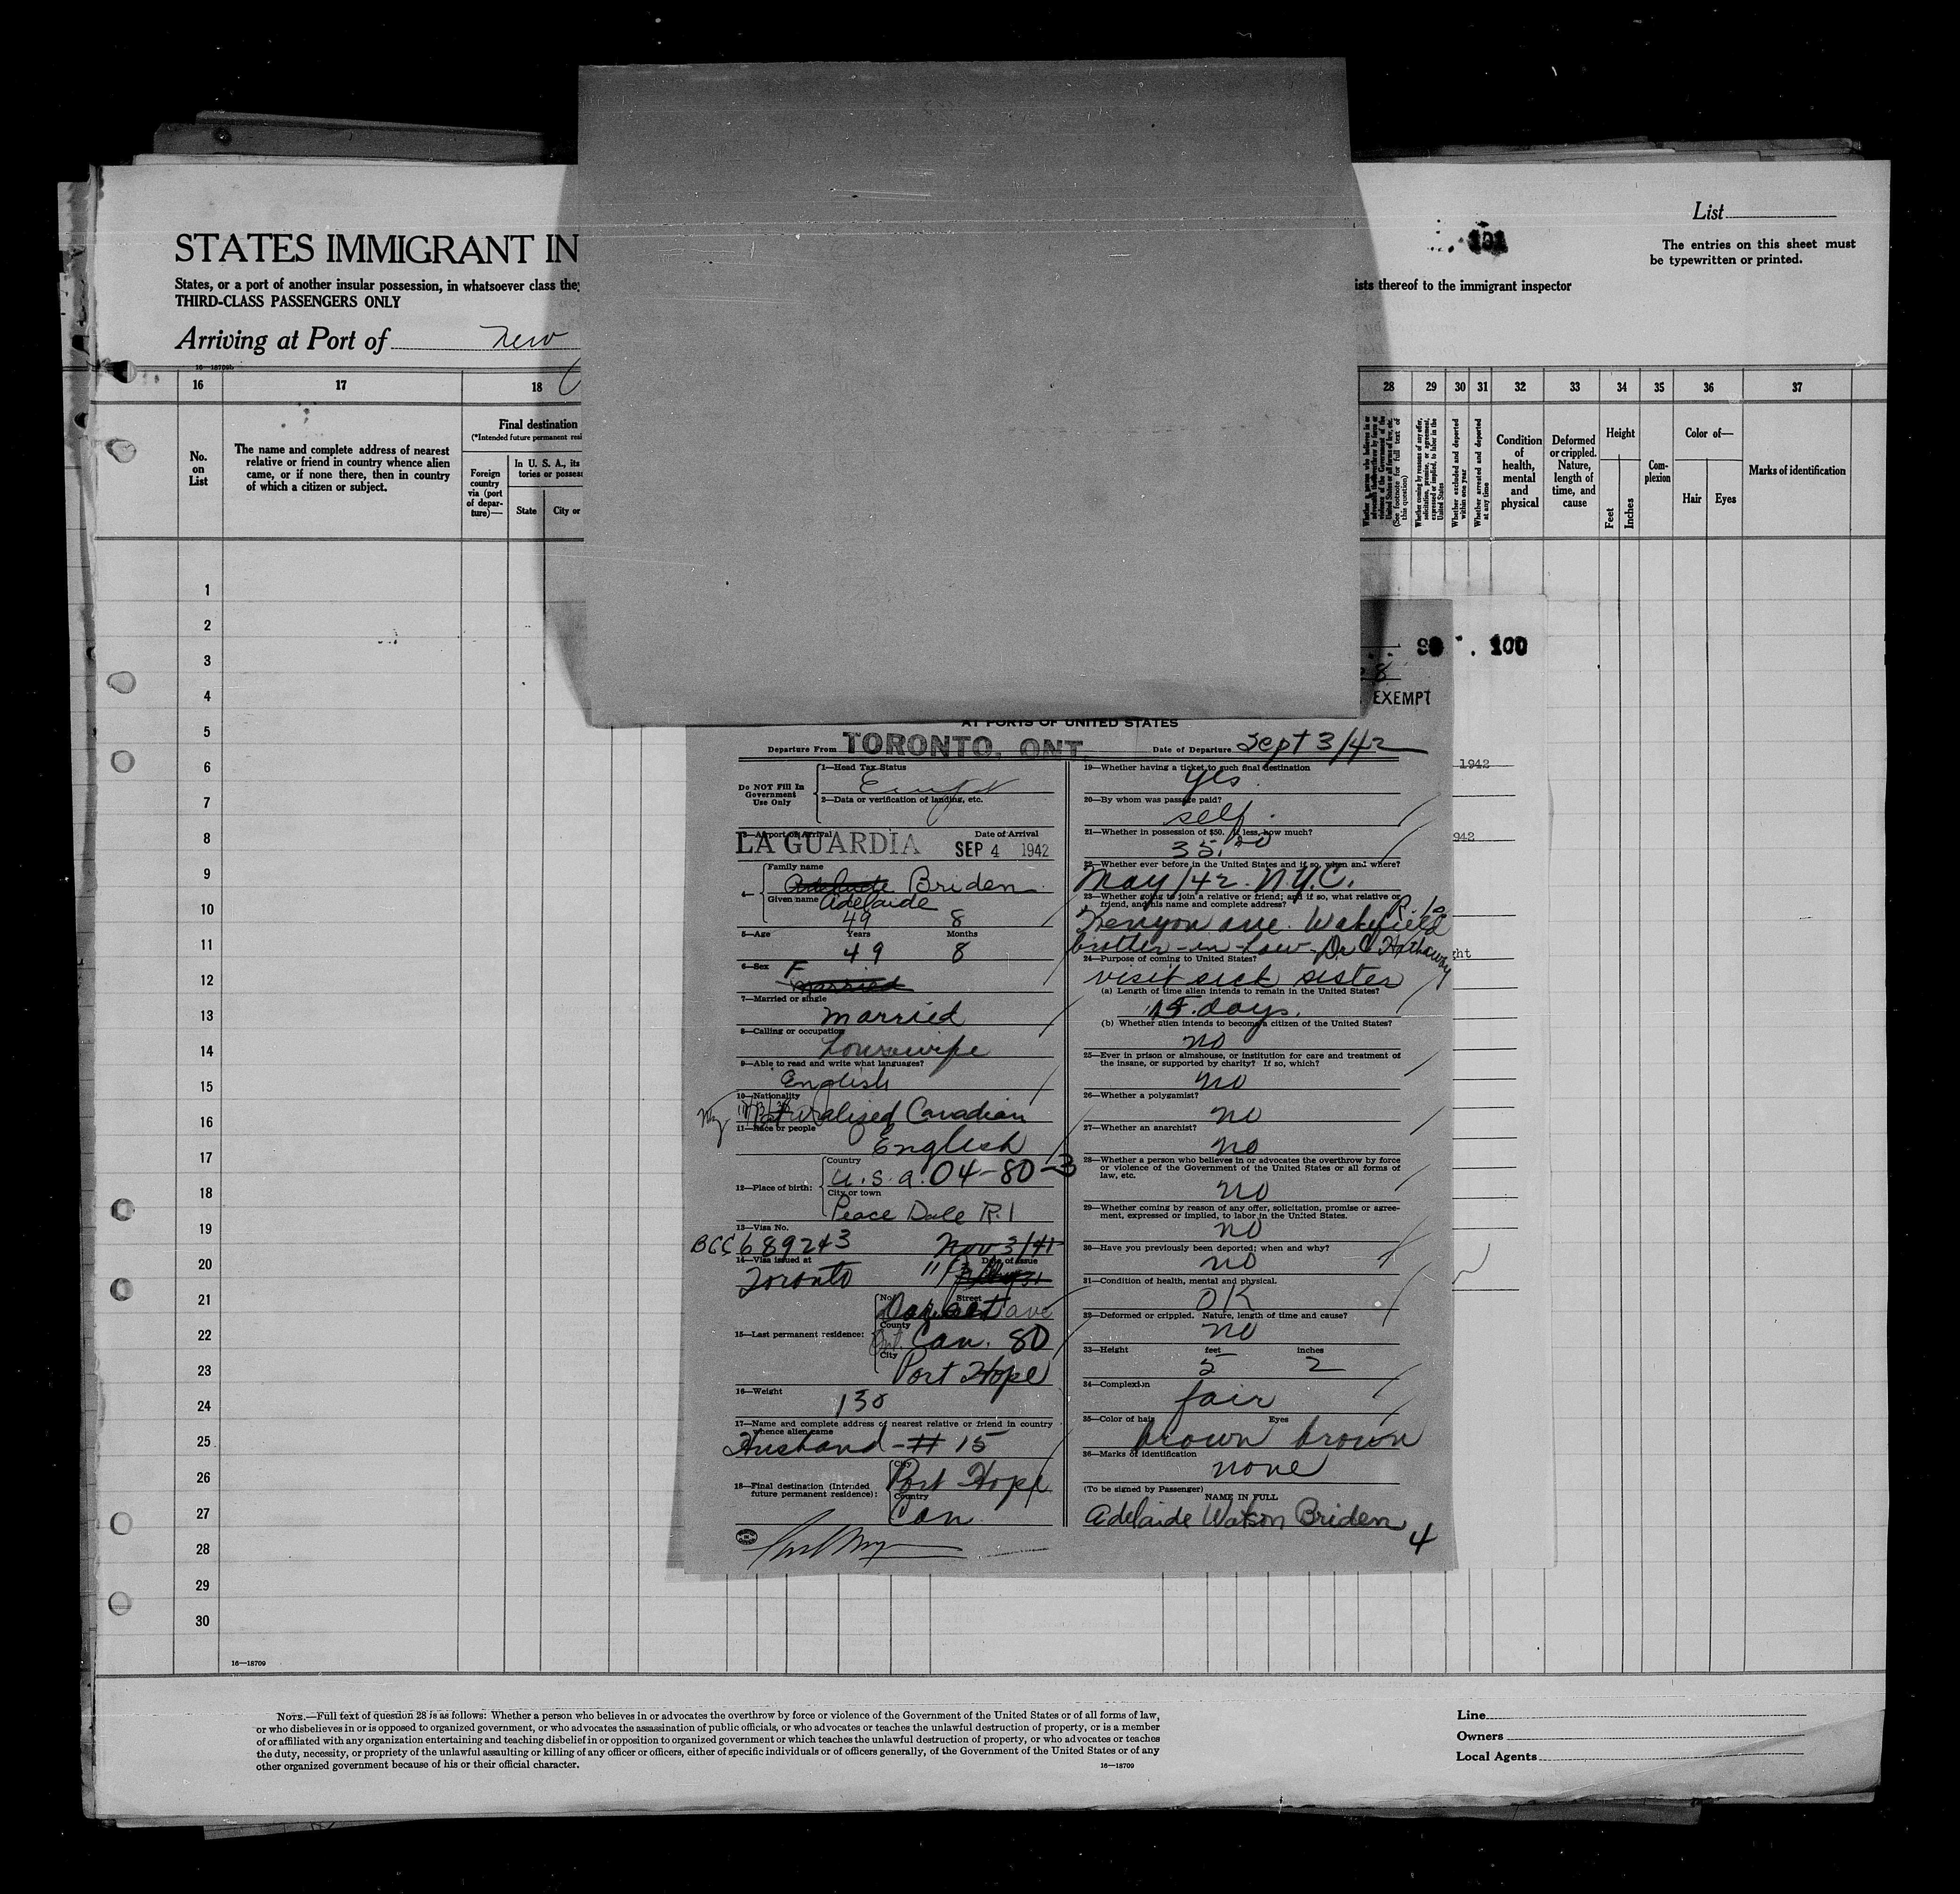 List
101
The entries on this sheet must
be typewritten or printed.
STATES IMMIGRANT IN
States, or a port of another insular possession, in whatsoever class they
ists thereof to the immigrant inspector
THIRD-CLASS PASSENGERS ONLY
Arriving at Port of New
16—18709b
16 17 18 28 29 30 31 32 33 34 35 36 37
No.
on
List
The name and complete address of nearest
relative or friend in country whence alien
came, or if none there, then in country
of which a citizen or subject.
Final destination
(*Intended future permanent resi
Foreign
country
via (port
of depar-
ture)—
In U. S. A., its
tories or possess
State City or
(See footnote for full text of
this question)
Whether coming by reason of any offer,
solicitation, promise, or agreement,
expressed or implied, to labor in the
United States
Whether excluded and deported
within one year
Whether arrested and deported
at any time
Condition
of
health,
mental
and
physical
Deformed
or crippled.
Nature,
length of
time, and
cause
Height
Feet
Inches
Com-
plexion
Color of—
Hair Eyes
Marks of identification
1
2
3
4
5
6
7
8
9
10
11
12
13
14
15
16
17
18
19
20
21
22
23
24
25
26
27
28
29
30
100
8
EXEMPT
1942
942
ght
AT PORTS OF UNITED STATES
Departure From TORONTO, ONT. Date of Departure Sept 3/42
Do NOT Fill In
Government
Use Only
1—Head Tax Status
2—Data or verification of landing, etc.
3—Airport of Arrival Date of Arrival
LA GUARDIA SEP 4 1942
4—
Family name
Adelaide Briden
Given name Adelaide
49 8
5—Age Years Months
49 8
6—Sex F
married
7—Married or single
married
8—Calling or occupation
housewife
9—Able to read and write what languages?
English
10—Nationality
Naturalised Canadian
11—Race or people
English
12—Place of birth:
Country
U.S.A. 04-80-3
City or town
Peace Dale R.I
13—Visa No.
BCC 689243 Nov 3/41
14—Visa issued at Date of issue
Toronto
15—Last permanent residence:
No. Street
ave
County
Ont. Can. 80
City
Port Hope
16—Weight
130
17—Name and complete address of nearest relative or friend in country
whence alien came
Husband - # 15
18—Final destination (Intended
future permanent residence):
City
Port Hope
Country
Can
19—Whether having a ticket to such final destination
yes
20—By whom was passage paid?
self.
21—Whether in possession of $50. If less, how much?
35.00
22—Whether ever before in the United States and if so, when and where?
May/42. N.Y.C.
23—Whether going to join a relative or friend; and if so, what relative or
friend, and his name and complete address?
R.I.
Kenyon ave. Wakefield
brother-in-law Dr C Hathaway
24—Purpose of coming to United States?
visit sick sister
(a) Length of time alien intends to remain in the United States?
15 days.
(b) Whether alien intends to become a citizen of the United States?
no
25—Ever in prison or almshouse, or institution for care and treatment of
the insane, or supported by charity? If so, which?
no
26—Whether a polygamist?
no
27—Whether an anarchist?
no
28—Whether a person who believes in or advocates the overthrow by force
or violence of the Government of the United States or all forms of
law, etc.
no
29—Whether coming by reason of any offer, solicitation, promise or agree-
ment, expressed or implied, to labor in the United States.
no
30—Have you previously been deported; when and why?
no
31—Condition of health, mental and physical.
OK
32—Deformed or crippled. Nature, length of time and cause?
no
33—Height feet inches
5 2
34—Complexion
fair
35—Color of hair Eyes
brown brown
36—Marks of identification
none
(To be signed by Passenger)
NAME IN FULL
Adelaide Watson Briden
4
16—18709
NOTE.—Full text of question 28 is as follows: Whether a person who believes in or advocates the overthrow by force or violence of the Government of the United States or of all forms of law,
or who disbelieves in or is opposed to organized government, or who advocates the assassination of public officials, or who advocates or teaches the unlawful destruction of property, or is a member
of or affiliated with any organization entertaining and teaching disbelief in or opposition to organized government or which teaches the unlawful destruction of property, or who advocates or teaches
the duty, necessity, or propriety of the unlawful assaulting or killing of any officer or officers, either of specific individuals or of officers generally, of the Government of the United States or of any
other organized government because of his or their official character.
16—18709
Line
Owners
Local Agents